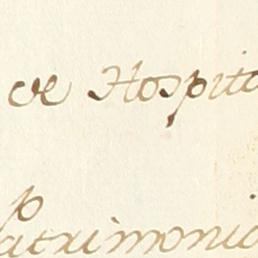 de Hospita
Patrimonio